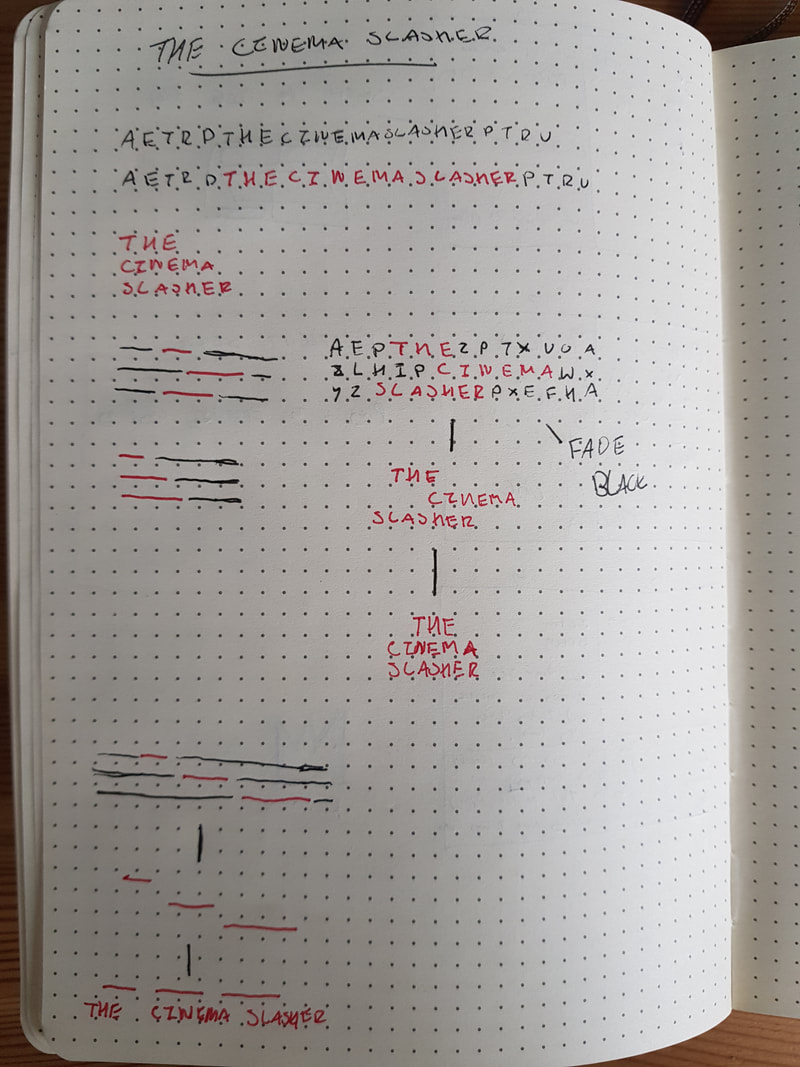 THE CINEMA SLASHER
AETRDTHECINEMASLASHERPTRU
AETRDTHECINEMASLASHERPTRU
THE
CINEMA
SLASHER
AEPTHEZPTXUOA
ZLHIPCINEMAWX
YZSLASHERPXEFHA
FADE
BLACK
THE
CINEMA
SLASHER
THE
CINEMA
SLASHER
THE CINEMA SLASHER